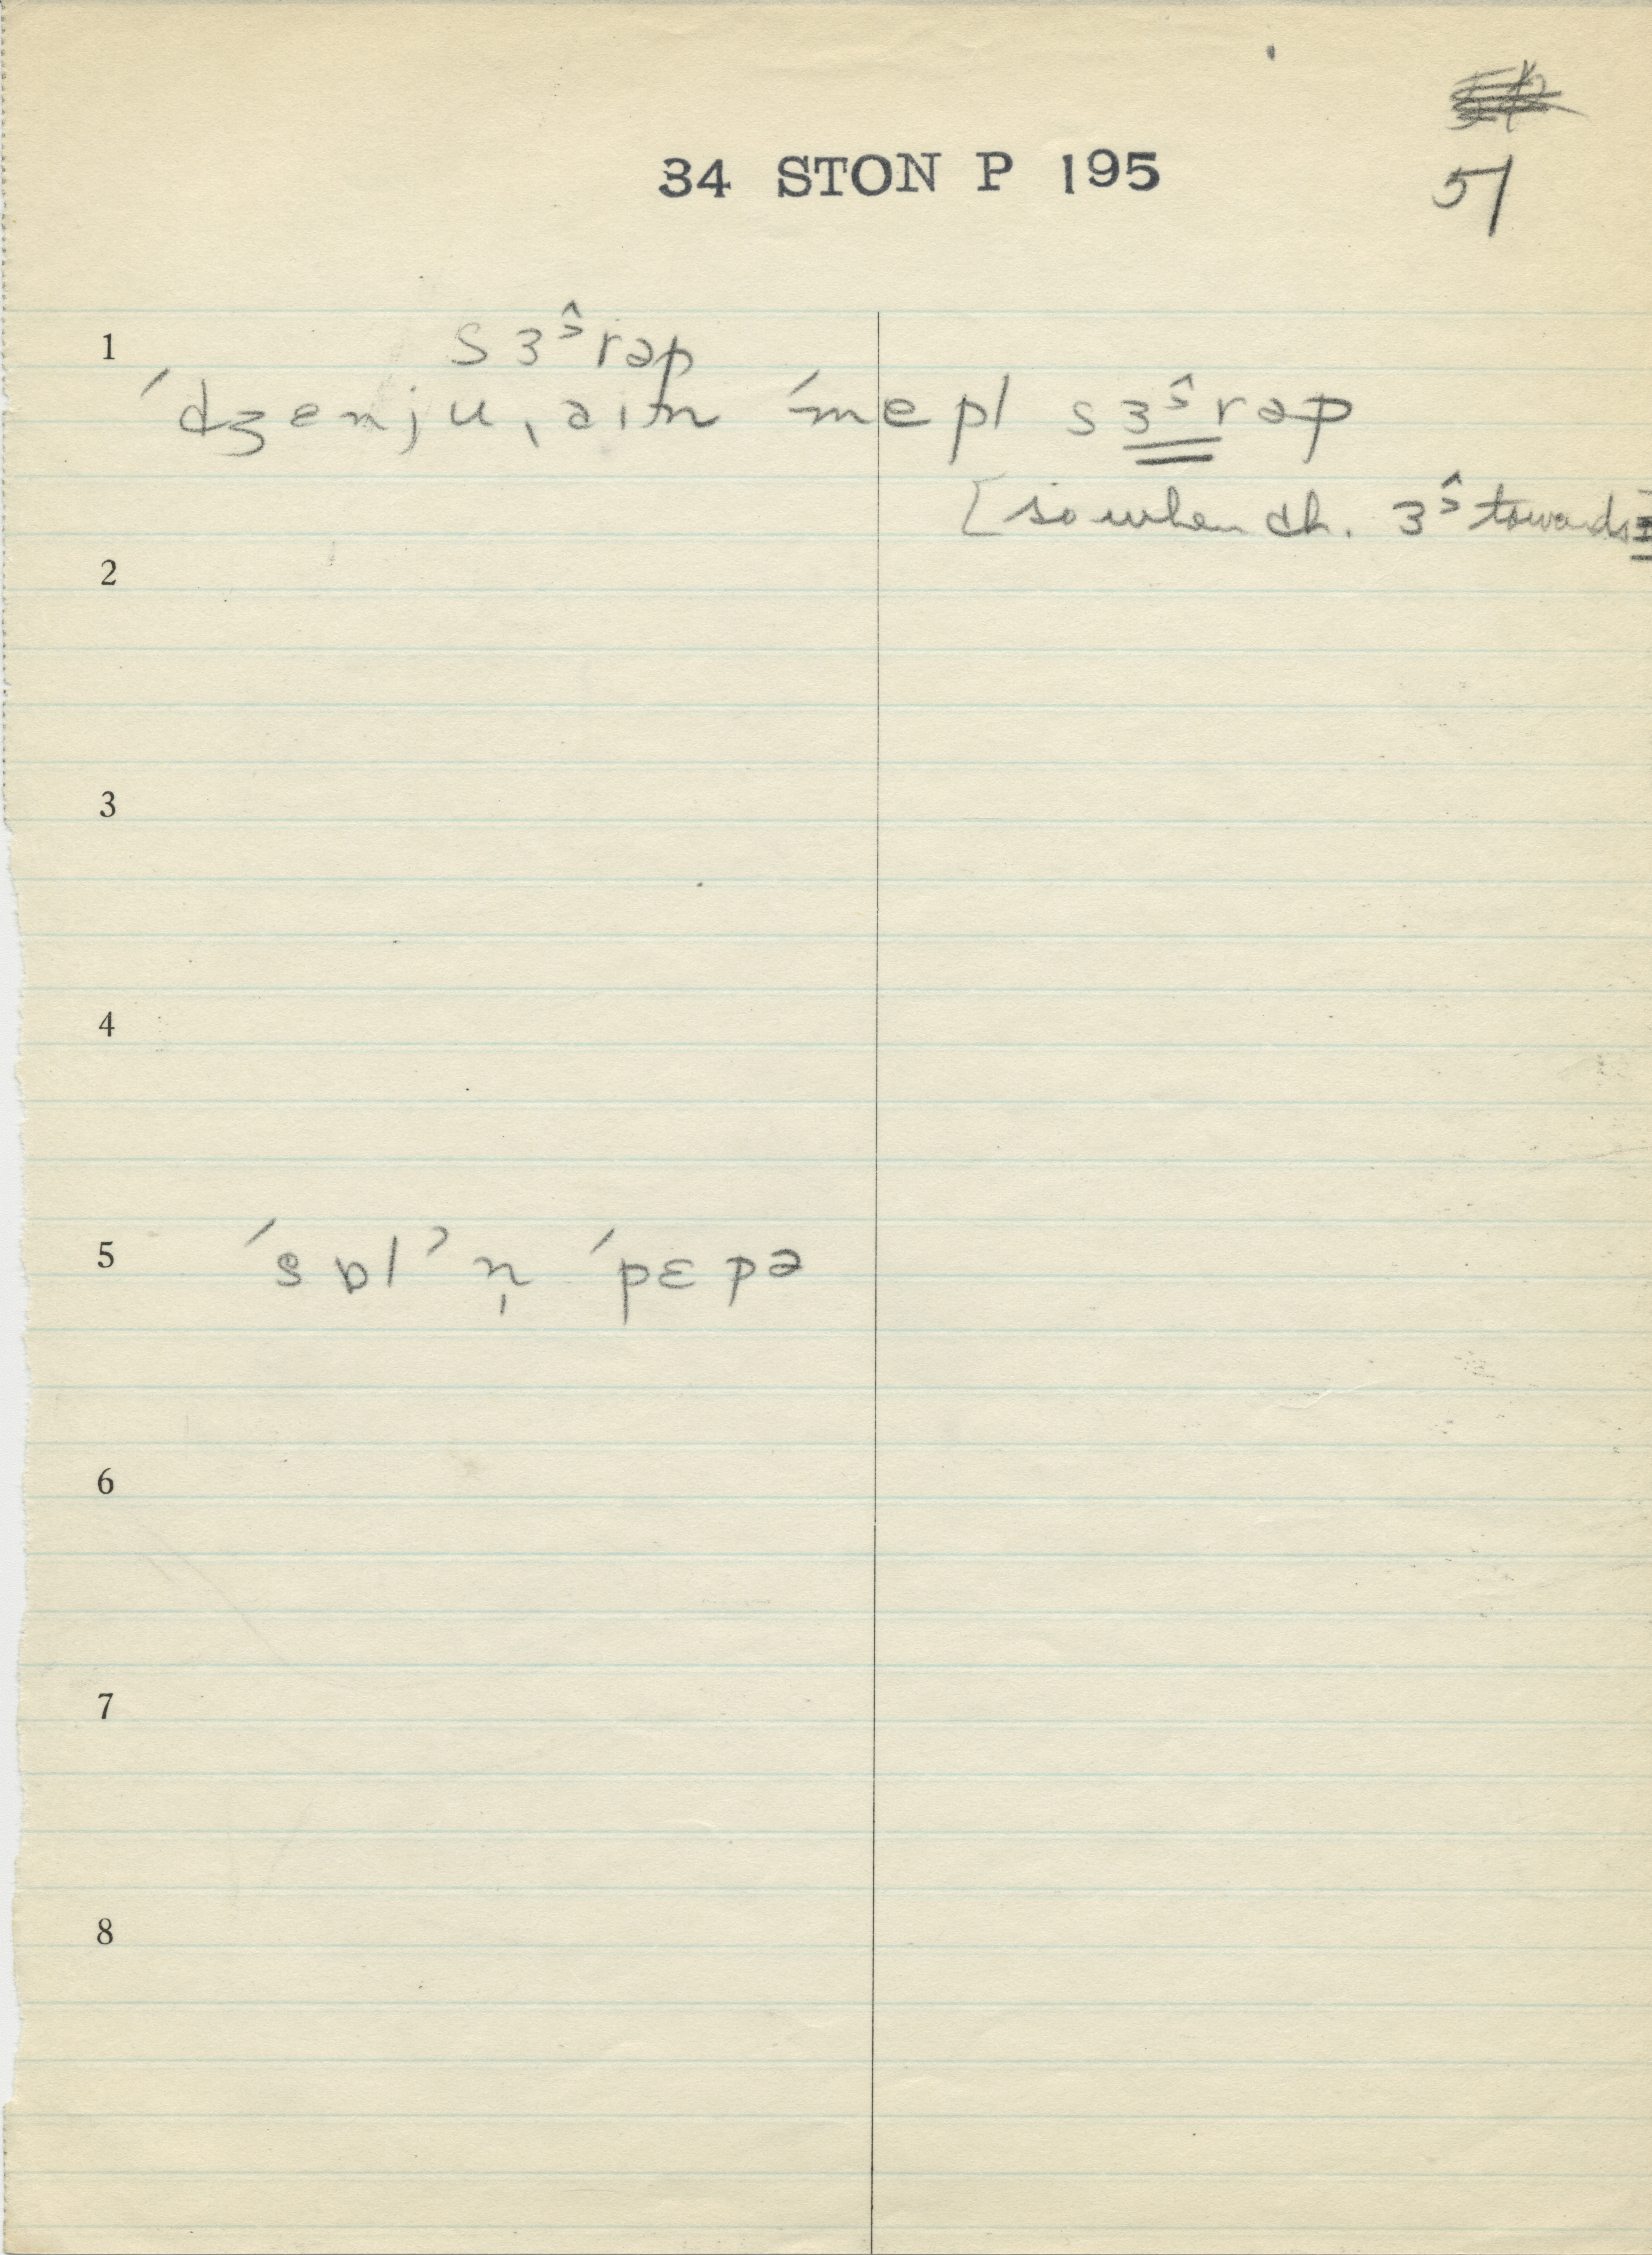 34 STON P 195
51
1
sɜ᷈rəp
ˈdʒenjuˌain ˈmepl sɜ᷈rəp
[so when ch. ɜ᷈ towards
2
3
4
5
ˈsɒlʾn̩ ˈpɛpə
6
7
8